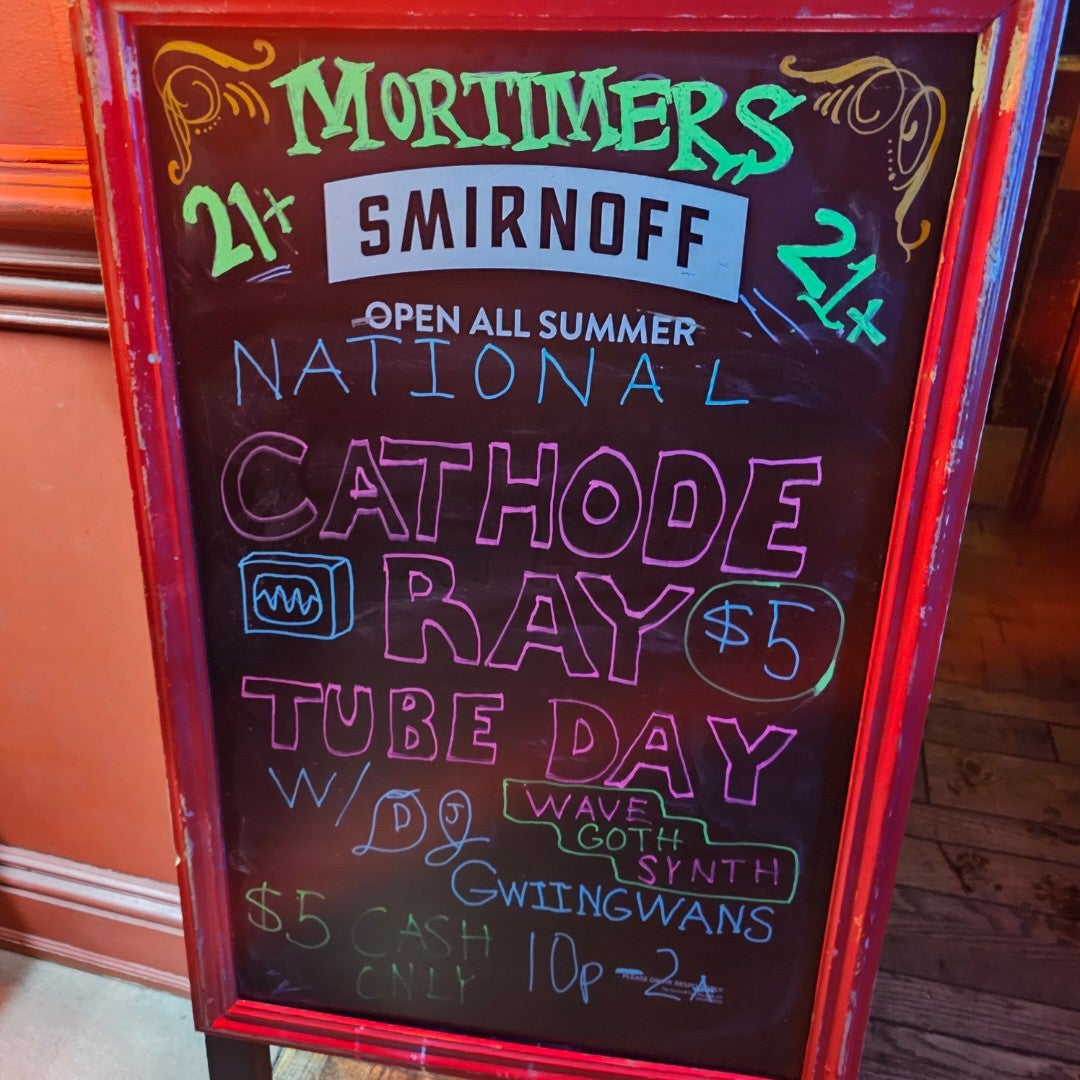 MORTIMERS
21+ SMIRNOFF 21+
OPEN ALL SUMMER
NATIONAL
CATHODE
RAY $5
TUBE DAY
W/ DJ WAVE
GOTH
SYNTH
GWIINGWANS
$5 CASH
ONLY
10p-2A
PLEASE DRINK RESPONSIBLY.